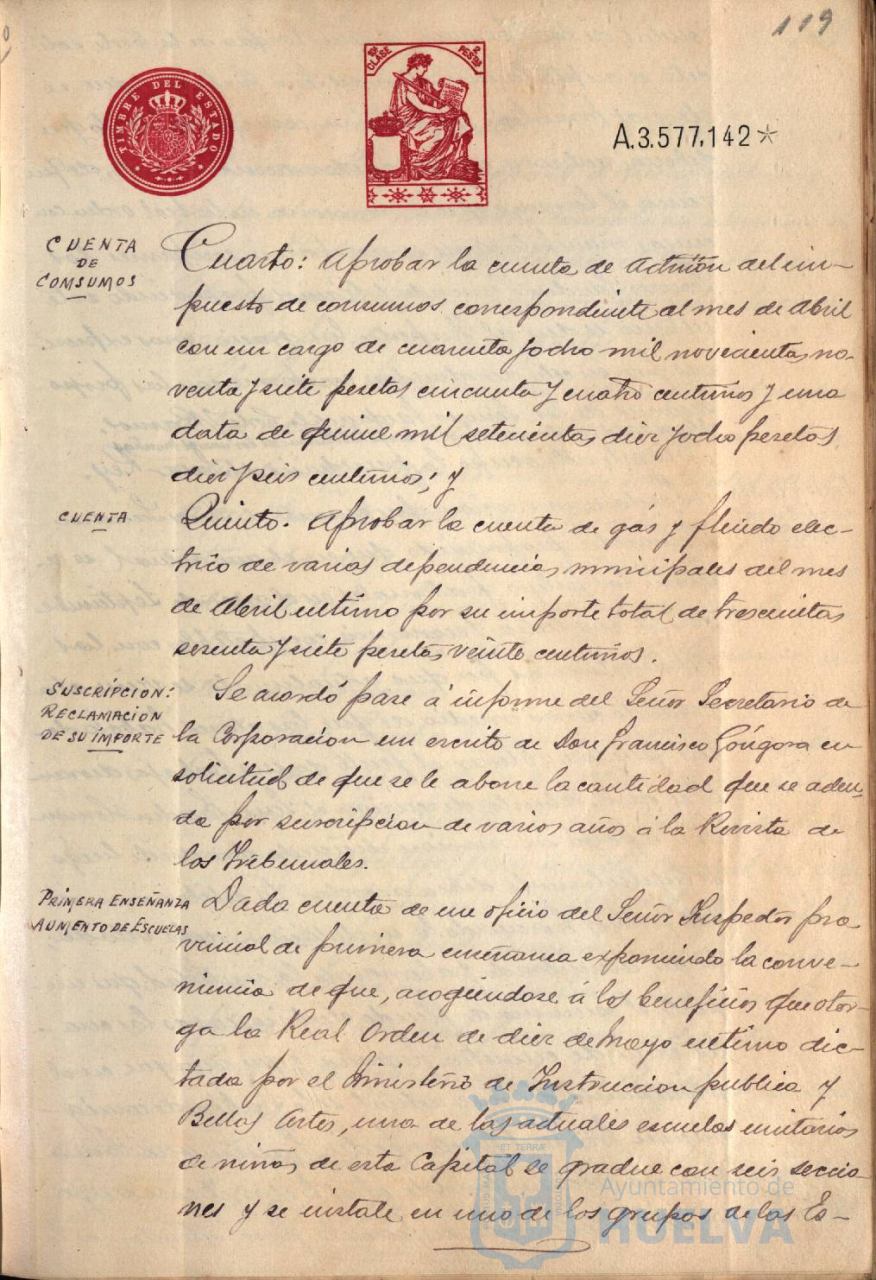 119
TIMBRE DEL ESTADO
CLASE
2 PESTAS
A.3.577,142
CUENTA
DE
COMSUMOS
Cuarto: Aprobar la cuenta de Admon del im-
puesto de consumos correspondiente al mes de Abril
con un cargo de cuarenta y ocho mil novecientas no-
venta y siete pesetas cincuenta y cuatro centimos y una
data de quince mil setecientas diez y ocho pesetas
diez y seis centimos; y
CUENTA
Quinto. Aprobar la cuenta de gás y fluido elec-
trico de varias dependencias municipales del mes
de Abril ultimo por su importe total de trescientas
sesenta y siete pesetas veinte centimos.
SUSCRIPCION:
RECLAMACION
DE SU IMPORTE
Se acordó pase á informe del Señor Secretario de
la Corporacion un escrito de Don Francisco Góngora en
solicitud de que se le abone la cantidad que se adeu-
da por suscripcion de varios años á la Revista de
los Tribunales.
PRIMERA ENSEÑANZA
AUMENTO DE ESCUELAS
Dada cuenta de un oficio del Señor Inspector pro-
vincial de primera enseñanza exponiendo la conve-
niencia de que, acogiendose á los beneficios que otor-
ga la Real Orden de diez de Mayo ultimo dic-
tada por el Ministerio de Instruccion publica y
Bellas Artes, una de las actuales escuelas unitarias
de niños de esta Capital se gradue con seis seccio-
nes y se instale en uno de los grupos de las Es-
Ayuntamiento de
HUELVA